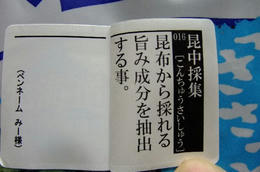 016
昆中採集
[こんちゅうさいしゅう]
昆布から採れる
旨み成分を抽出
する事。
(ペンネーム みー様)